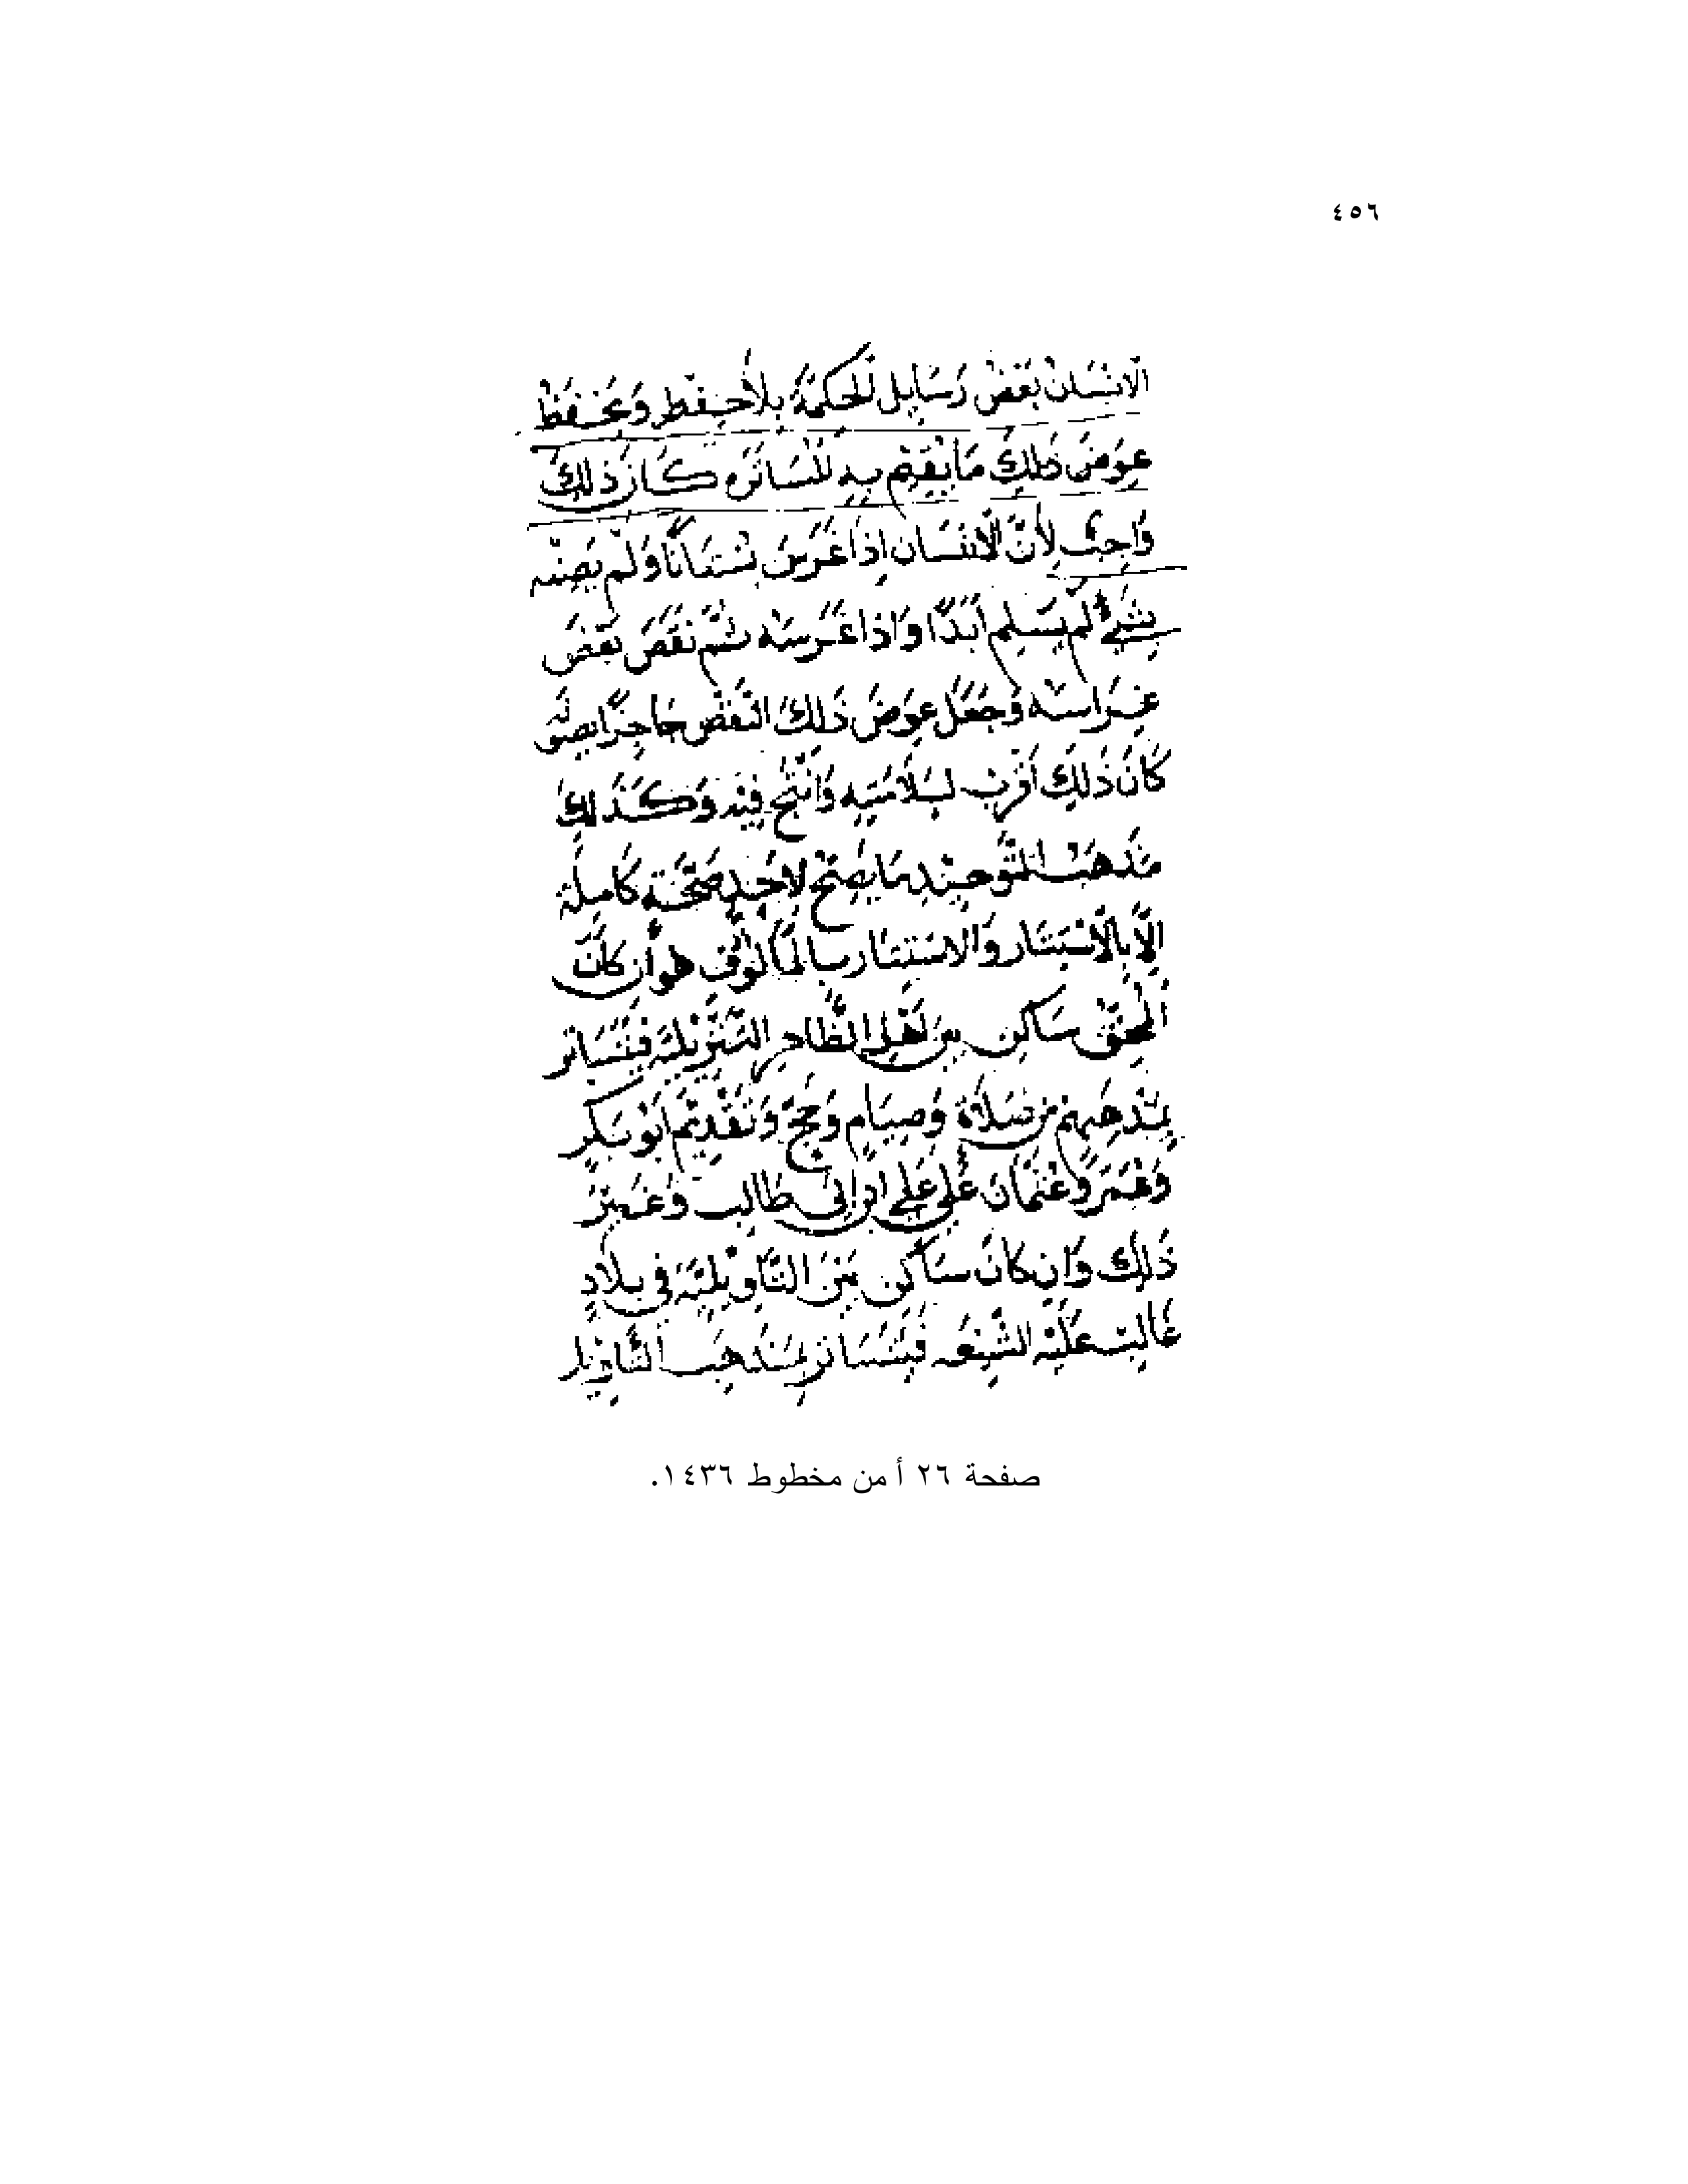 ٤٥٦
الانسَان بَعَض رَسَايل الحكمَة بلاحفظ وَيَحفظ
عِوَض ذَلكَ مَا يقيم بهِ المسَاترَه كَان ذلكَ
وَاجبٌ لأنّ الانسَان إذا غَرَسَ بُستَانًا وَلَم يصنه
بشيءٍ لَم يَسلم أبَدًا وَاذا غَرسَه ثم نَقَصَ بَعض
غراسه وَجَعَل عوَضَ ذَلكَ النقض حَاجزًا يصونه
كَانَ ذَلكَ اقرب لسَلامَتِه وَانتج فيه وَكَذَلك
مَذهَب التوحيد مَا يصَحّ لاحد صحَّة كَامِلة
الّا بالاستتار والاستتار بالمَالوف هوَ أن كَانَ
المحقّ سَاكن بين اهل الظّاهر التنزيليَّة فيتسَاتر
بمذهبهم من صَلاة وَصيَام وَحجّ وَتقديم ابو بَكر
وَعُمَر وَعثمان عَلى عَلي ابن ابي طَالب وَغَير
ذَلكَ وَان كانَ سَاكن بَين التاويليَّة في بلادٍ
غالب عَليه الشيعَه فيتسَاتر بمَذهَب التاويل
صفحة ٢٦ أ من مخطوط ١٤٣٦.